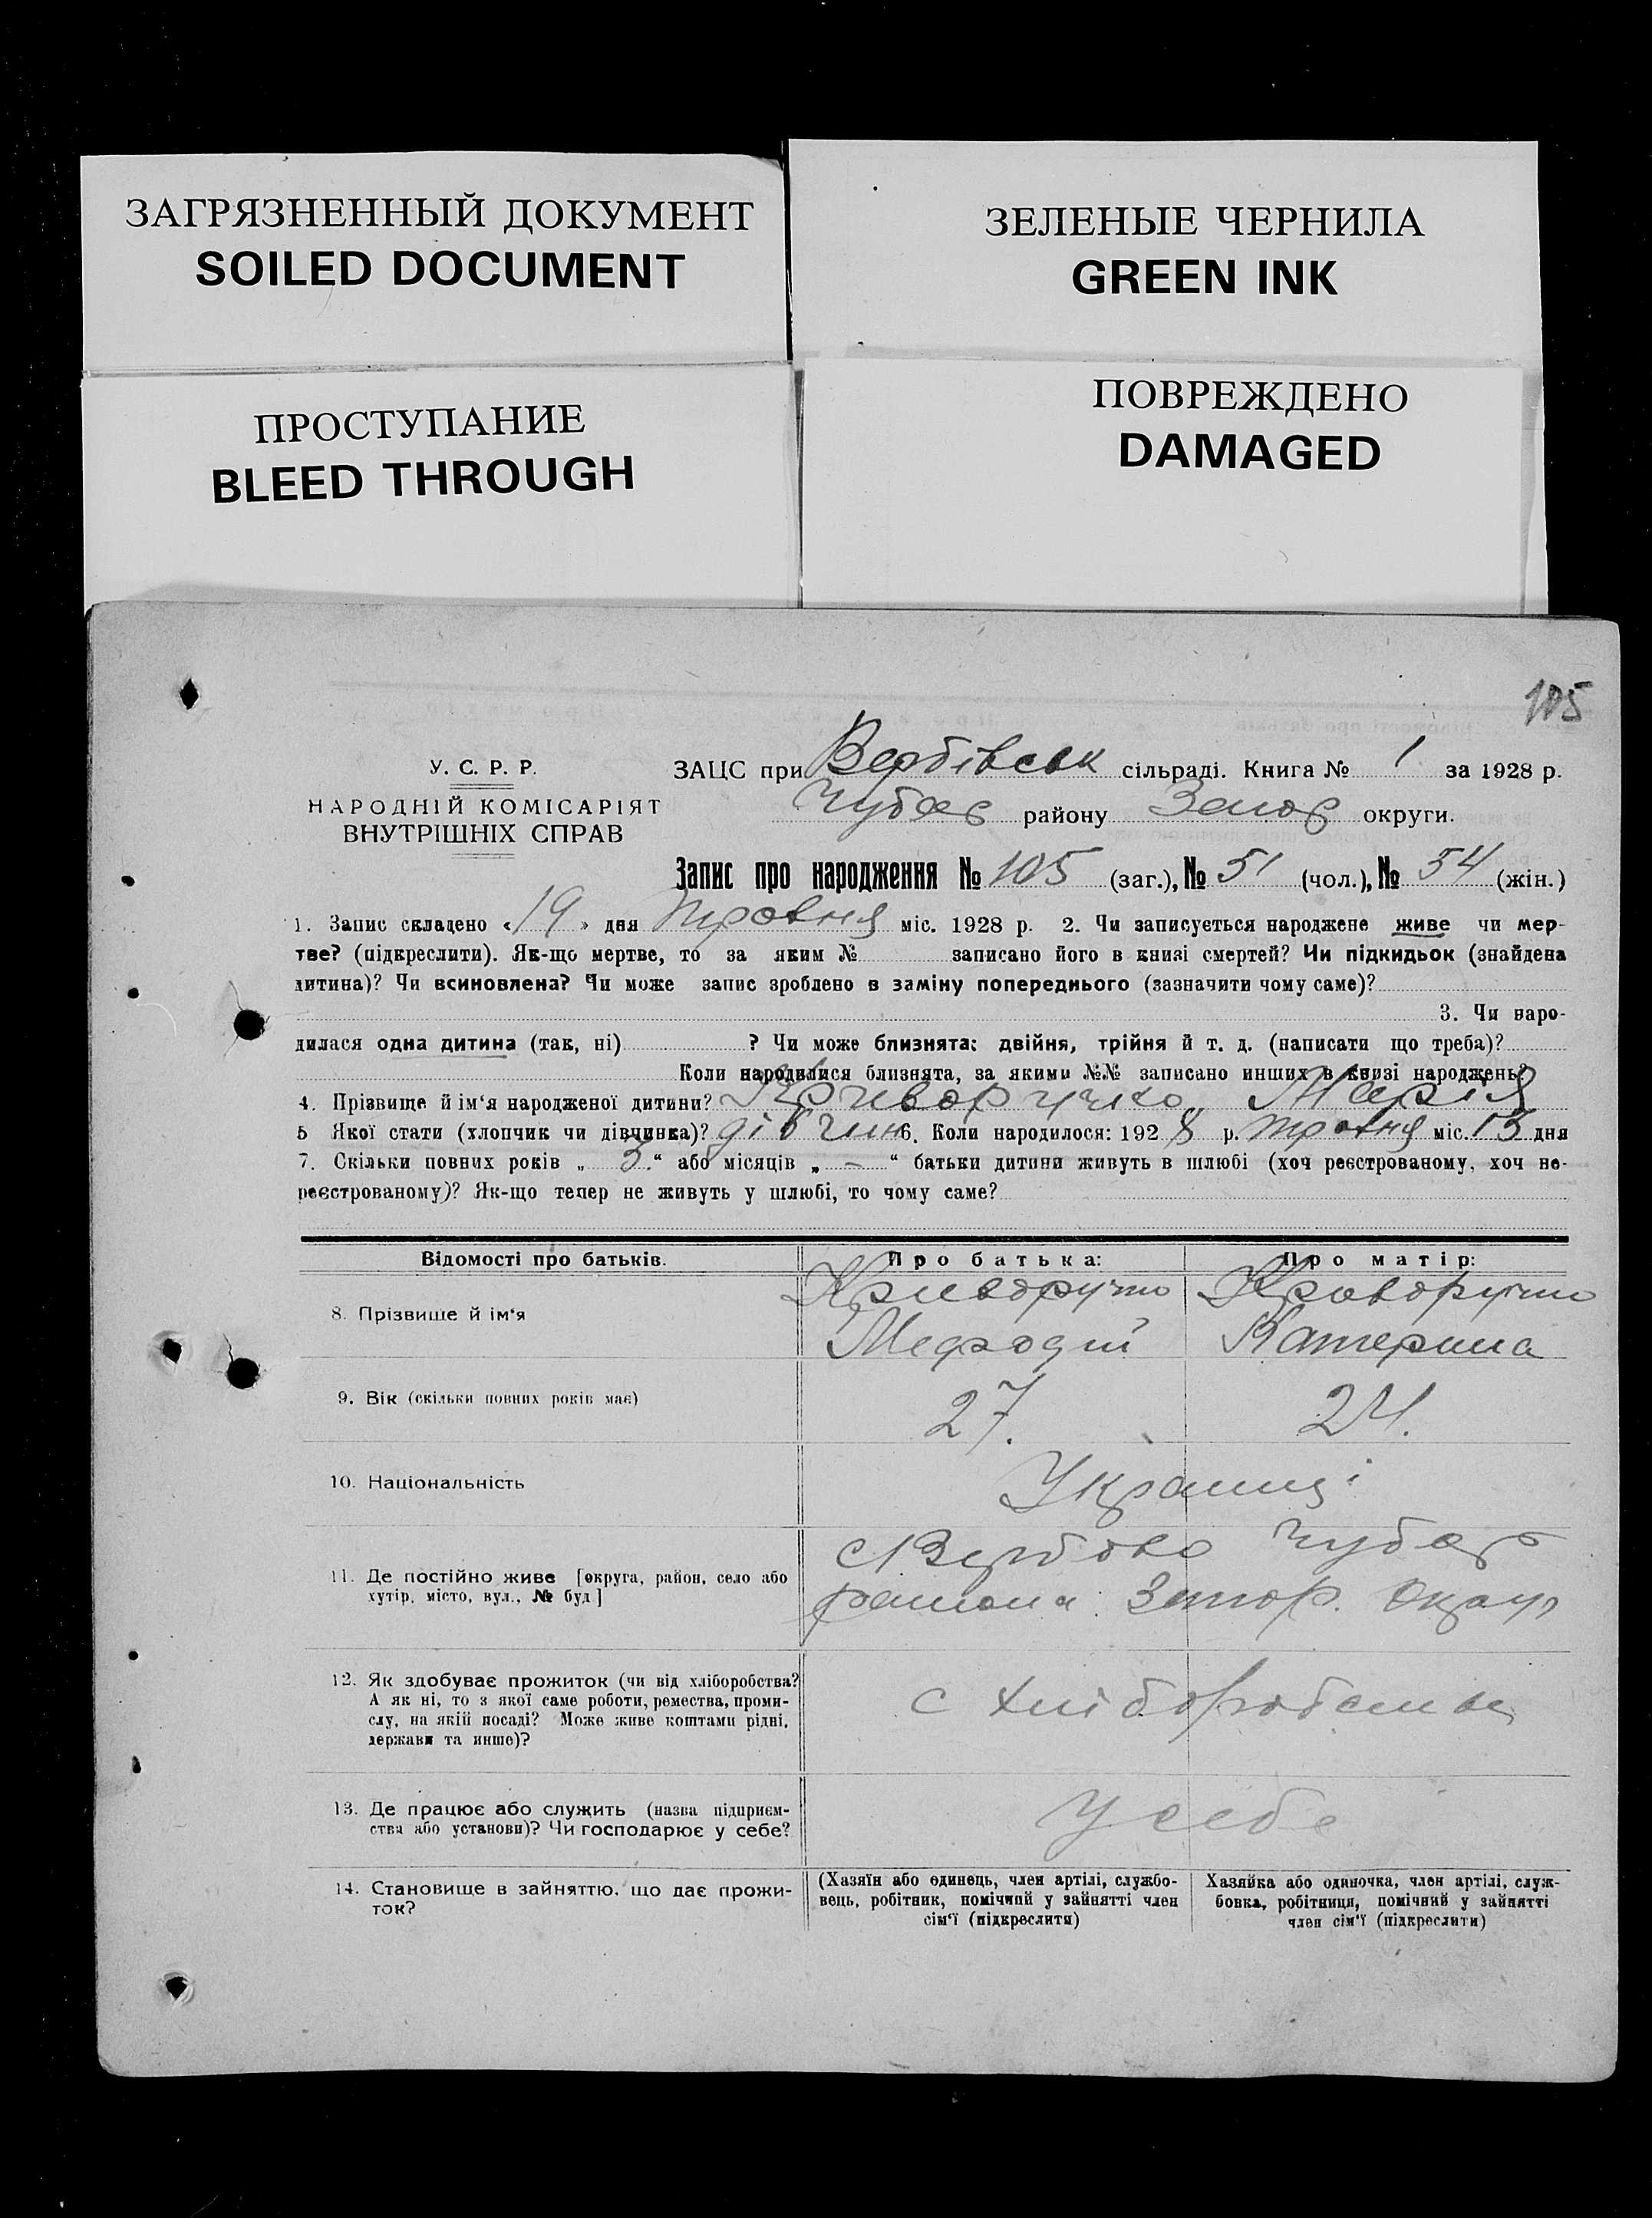 ЗАГРЯЗНЕННЫЙ ДОКУМЕНТ
SOILED DOCUMENT
ЗЕЛЕНЫЕ ЧЕРНИЛА
GREEN INK
ПРОСТУПАНИЕ
BLEED THROUGH
ПОВРЕЖДЕНО
DAMAGED
105
У. С. Р. Р.
НАРОДНІЙ КОМІСАРІЯТ
ВНУТРІШНІХ СПРАВ
ЗАЦС при Вербівськ сільраді. Книга № 1 за 1928 р.
Чубар району Запор округи.
Запис про народження № 105 (заг.), № 51 (чол.), № 54 (жін.)
1. Запис складено «19» дня травня міс. 1928 р. 2. Чи записується народжене живе чи мер-
тве? (підкреслити). Як-що мертве, то за яким № записано його в книзі смертей? Чи підкидьок (знайдена
дитина)? Чи всиновлена? Чи може запис зроблено в заміну попереднього (зазначити чому саме)?
3. Чи наро-
дилася одна дитина (так, ні) ? Чи може близнята: двійня, трійня й т. д. (написати що треба)?
Коли народилися близнята, за якими №№ записано инших в книзі народжень?
4. Прізвище й ім‘я народженої дитини? Криворучко Марія
5 Якої стати (хлопчик чи дівчинка)? дівчин 6. Коли народилося: 1928 р. травня міс. 13 дня
7. Скільки повних років „ 3 “ або місяців „ - “ батьки дитини живуть в шлюбі (хоч реєстрованому, хоч не-
реєстрованому)? Як-що тепер не живуть у шлюбі, то чому саме?
Відомості про батьків.
Про батька:
Про матір:
8. Прізвище й ім‘я
Криворучко
Мефодій
Криворучко
Катерина
9. Вік (скільки повних років має)
27.
24.
10. Національність
Українці
11. Де постійно живе [округа, район, село або
хутір, місто, вул., № буд]
с Вербово Чубар
района Запор. Округ
12. Як здобуває прожиток (чи від хліборобства?
А як ні, то з якої саме роботи, ремества, проми-
слу, на якій посаді? Може живе коштами рідні,
держави та инше)?
с хліборобства
13. Де працює або служить (назва підприєм-
ства або установи)? Чи господарює у себе?
У себе
14. Становище в зайняттю, що дає прожи-
ток?
(Хазяїн або одинець, член артілі, службо-
вець, робітник, помічний у зайнятті член
сім‘ї (підкреслити)
Хазяйка або одиночка, член артілі, служ-
бовка, робітниця, помічний у зайнятті
член сім‘ї (підкреслити)